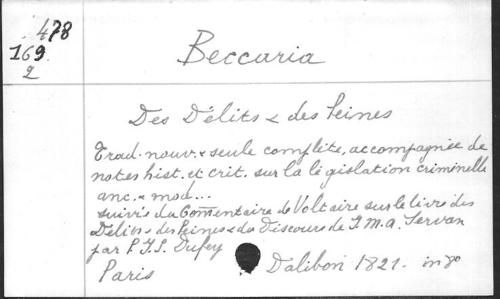 478
169
2
Beccaria
Des Délits & des Peines
Trad. nouv. & seule complète, accompagnée de
notes hist. et crit. sur la législation criminelle
anc. & mod...
suivie du Commentaire de Voltaire sur le livre des
Délits & des Peines & du Discours de J.M.A. Servan
par P.J.S. Dufey
Paris Dalibon 1821. in 8º